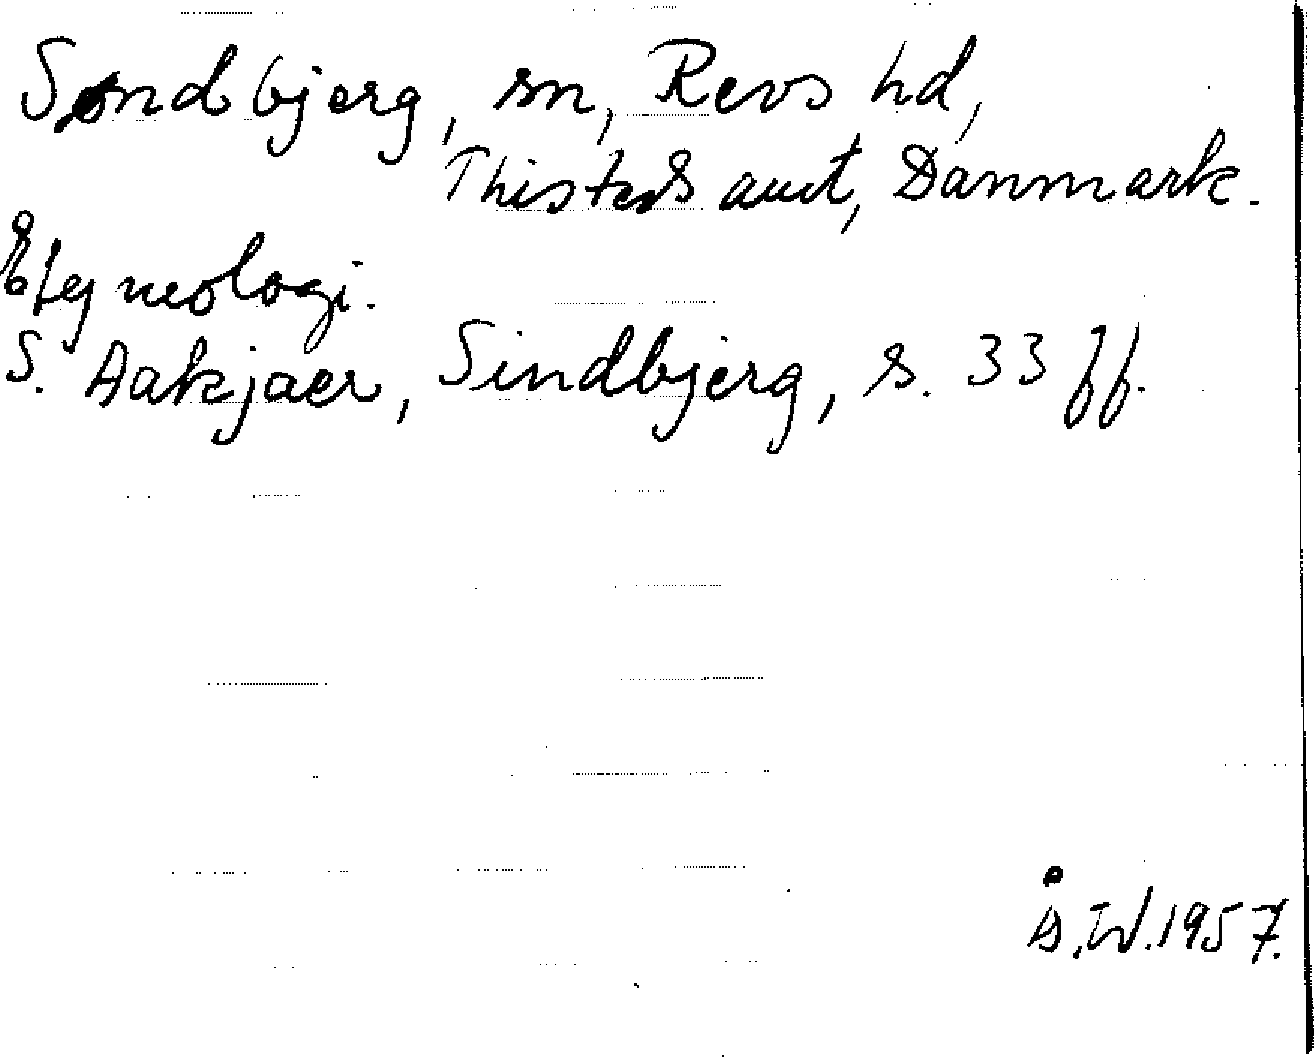 Søndbjerg, sn, Revs hd,
Thisteds amt, Danmark.
Etymologi.
S. Aakjaer, Sindbjerg, s. 33 ff.
Å.W. 1957.